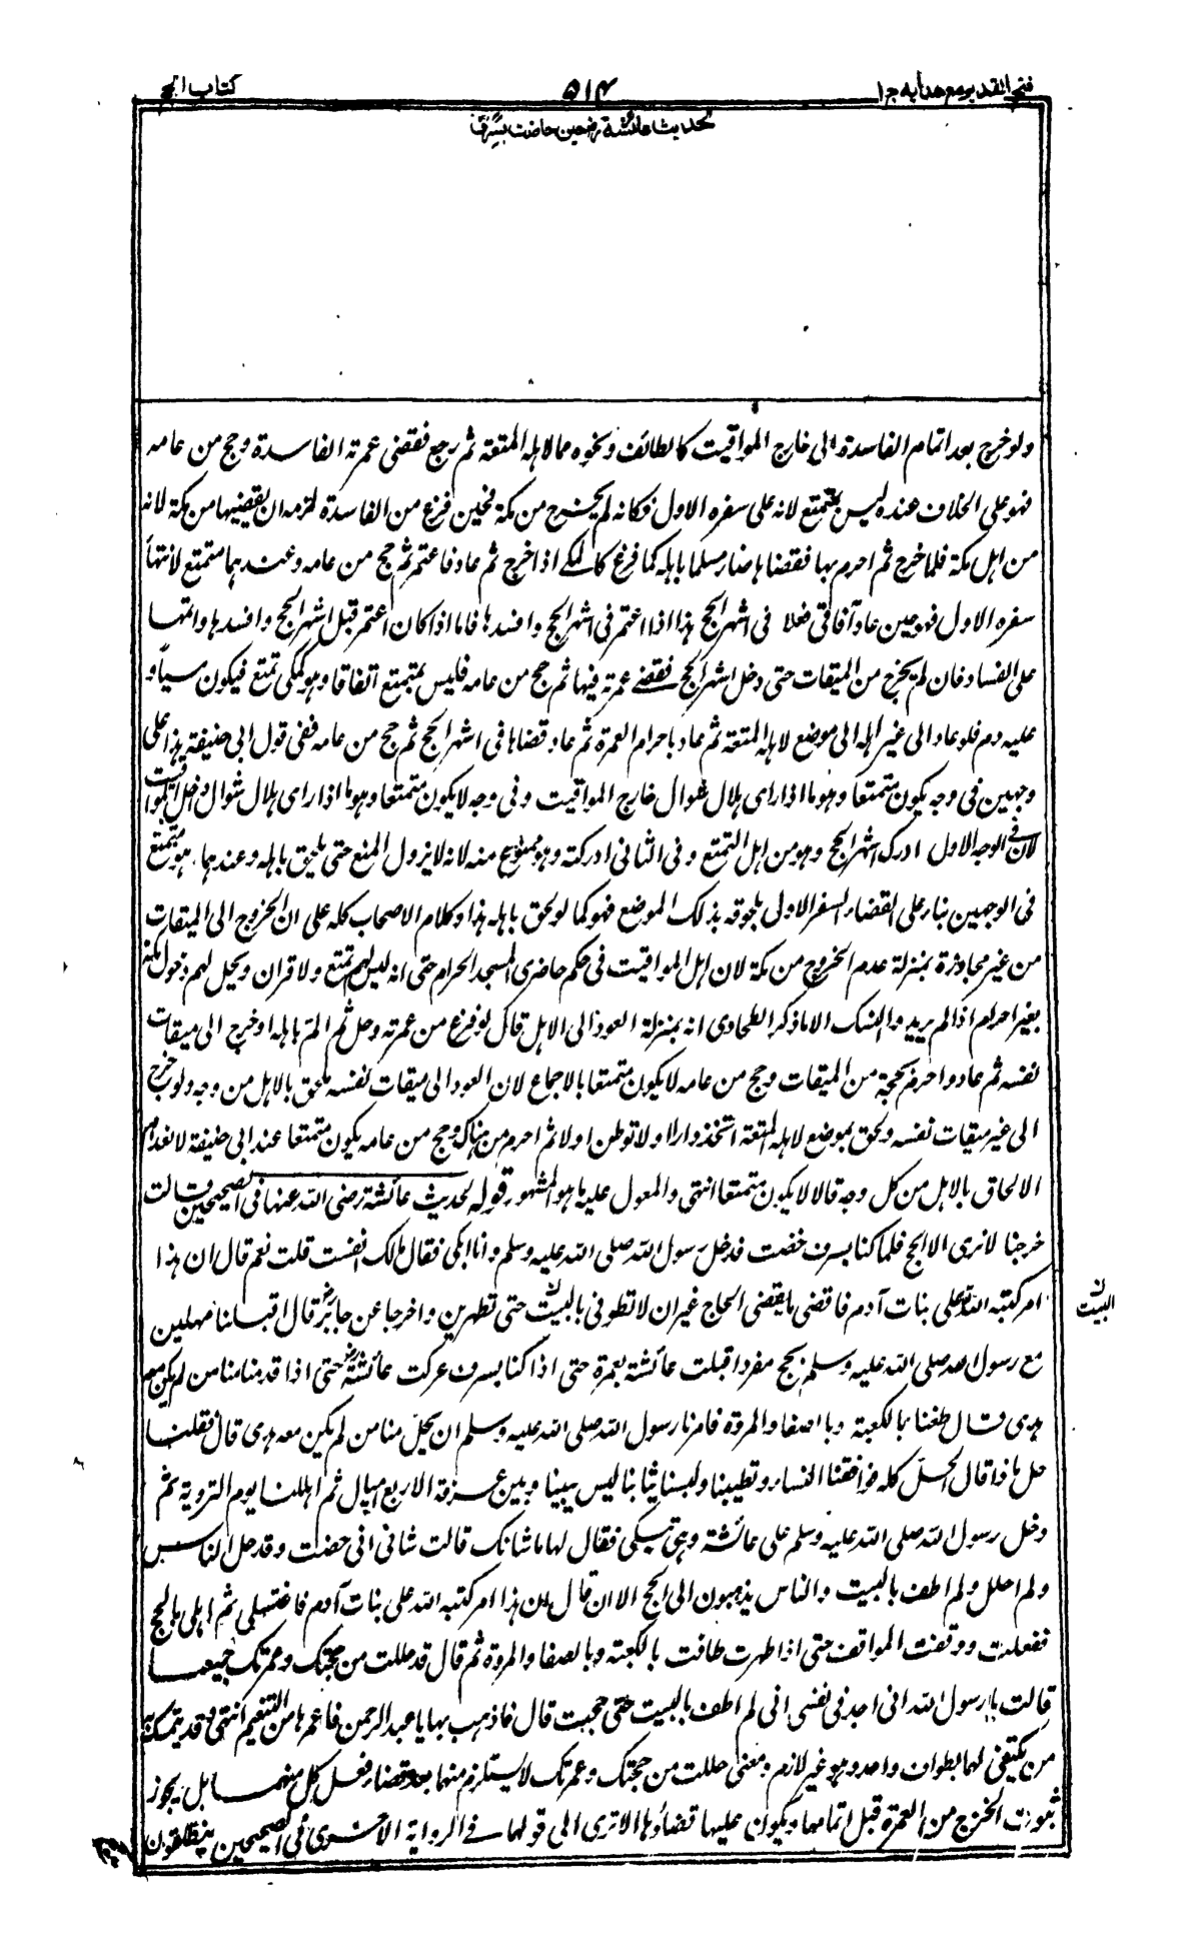 فتح القدير مع هدايه ج ا
٥١٤
كتاب الحج
لحديث عائشة رض حين حاضت بسرف
ولو خرج بعد اتمام الفاسدة الى خارج المواقيت كالطائف ونحوه مما لاهله المتعة ثم رجع فقضى عمرته الفاسدة وحج من عامه
فهو على الخلاف عنده ليس بمتمتع لانه على سفره الاول فكانه لم يخرج من مكة فحين فرغ من الفاسدة لزمه ان يقضيها من مكة لانه
من اهل مكة فلما خرج ثم احرم بها فقضاها صار مسلما باهله كما فرغ كالمكے اذا خرج ثم عاد فاعتمر ثم حج من عامه وعندهما متمتع لانتهاء
سفره الاول فهو حين عاد آفاقى فعلا فى اشهر الحج هذا اذا اعتمر فى اشهر الحج وافسدها فاما اذا كان اعتمر قبل اشهر الحج وافسدها واتمها
على الفساد فان لم يخرج من الميقات حتى دخل اشهر الحج فقضے عمرته فيها ثم حج من عامه فليس بمتمتع اتفاقا وهو كمكى تمتع فيكون سيأ و
عليه دم فلو عاد الى غير اهله الى موضع لاهله المتعة ثم عاد باحرام العمرة ثم عاد قضاها فى اشهر الحج ثم حج من عامه ففى قول ابى حنيفة هذا على
وجهين فى وجه يكون متمتعا وهو ما اذا راى هلال شوال خارج المواقيت وفى وجه لا يكون متمتعا وهو ما اذا راى هلال شوال داخل المواقيت
لان فى الوجه الاول ادرك اشهر الحج وهو من اهل التمتع وفى الثانى ادركته وهو ممنوع منه لانه لا يزول المنع حتى يلحق باهله وعندهما هو متمتع
فى الوجهين بناء على انقضاء السفر الاول بلحوقه بذلك الموضع فهو كما لو لحق باهله هذا وكلام الاصحاب كله على ان الخروج الى الميقات
من غير مجاوزة بمنزلة عدم الخروج من مكة لان اهل المواقيت فى حكم حاضرى المسجد الحرام حتى انه ليس لهم تمتع ولا قران ويحل لهم دخول مكة
بغير احرام اذا لم يريدوا النسك الا ما ذكر الطحاوى انه بمنزلة العود الى الاهل قال لو فرغ من عمرته وحل ثم الم باهله او خرج الى ميقات
نفسه ثم عاد واحرم بحجة من الميقات وحج من عامه لا يكون متمتعا بالاجماع لان العود الى ميقات نفسه ملحق بالاهل من وجه ولو خرج
الى غير ميقات نفسه ولحق بموضع لاهله المتعة اتخذ دارا او لا توطن او لا ثم احرم من هناك وحج من عامه يكون متمتعا عند ابى حنيفة لانعدام
الالحاق بالاهل من كل وجه وقالا لا يكون متمتعا انتهى والمعول عليه ما هو المشهور قوله لحديث عائشة رضى الله عنها فى الصحيحين قالت
خرجنا لا نرى الا الحج فلما كنا بسرف حضت فدخل رسول الله صلى الله عليه وسلم وانا ابكى فقال مالك انفست قلت نعم قال ان هذا
امر كتبه الله تعلى على بنات آدم فاقضى ما يقضى الحاج غير ان لا تطوفى بالبيت حتى تطهرين واخرجا عن جابر رض قال اقبلنا مهلين
البيت
مع رسول الله صلى الله عليه وسلم بحج مفرد اقبلت عائشة بعمرة حتى اذا كنا بسرف عركت عائشة رض حتى اذا قدمنا منا من لم يكن معه
هدى قال طفنا بالكعبة وبا لصفا والمروة فامرنا رسول الله صلى الله عليه وسلم ان يحل منا من لم يكن معه هدى قال فقلنا
حل ماذا قال الحل كله فواقعنا النساء وتطيبنا ولبسنا ثيابنا ليس بيننا وبين عرفة الا اربع ليال ثم اهللنا يوم التروية ثم
دخل رسول الله صلى الله عليه وسلم على عائشة وهى تبكى فقال لها ما شانك قالت شانى انى حضت وقد حل الناس
ولم احلل ولم اطف بالبيت والناس يذهبون الى الحج الان قال ان هذا امر كتبه الله على بنات آدم فاغتسلى ثم اهلى بالحج
ففعلت ووقفت المواقف حتى اذا طهرت طافت بالكعبة وبالصفا والمروة ثم قال قد حللت من حجتك وعمرتك جميعا
قالت يا رسول الله انى اجد فى نفسى انى لم اطف بالبيت حتى حججت قال فاذهب بها يا عبد الرحمن فاعمرها من التنعيم انتهى وقد يتمسك به
من يكتفى لهما بطواف واحد وهو غير لازم ومعنى حللت من حجتك وعمرتك لا يستلزم منهما بعد قضاء فعل كل منهما بل يجوز
ثبوت الخروج من العمرة قبل اتمامها ويكون عليها قضاؤها الا ترى الى قولها فے الرواية الاخرى فى الصحيحين ينطلقون